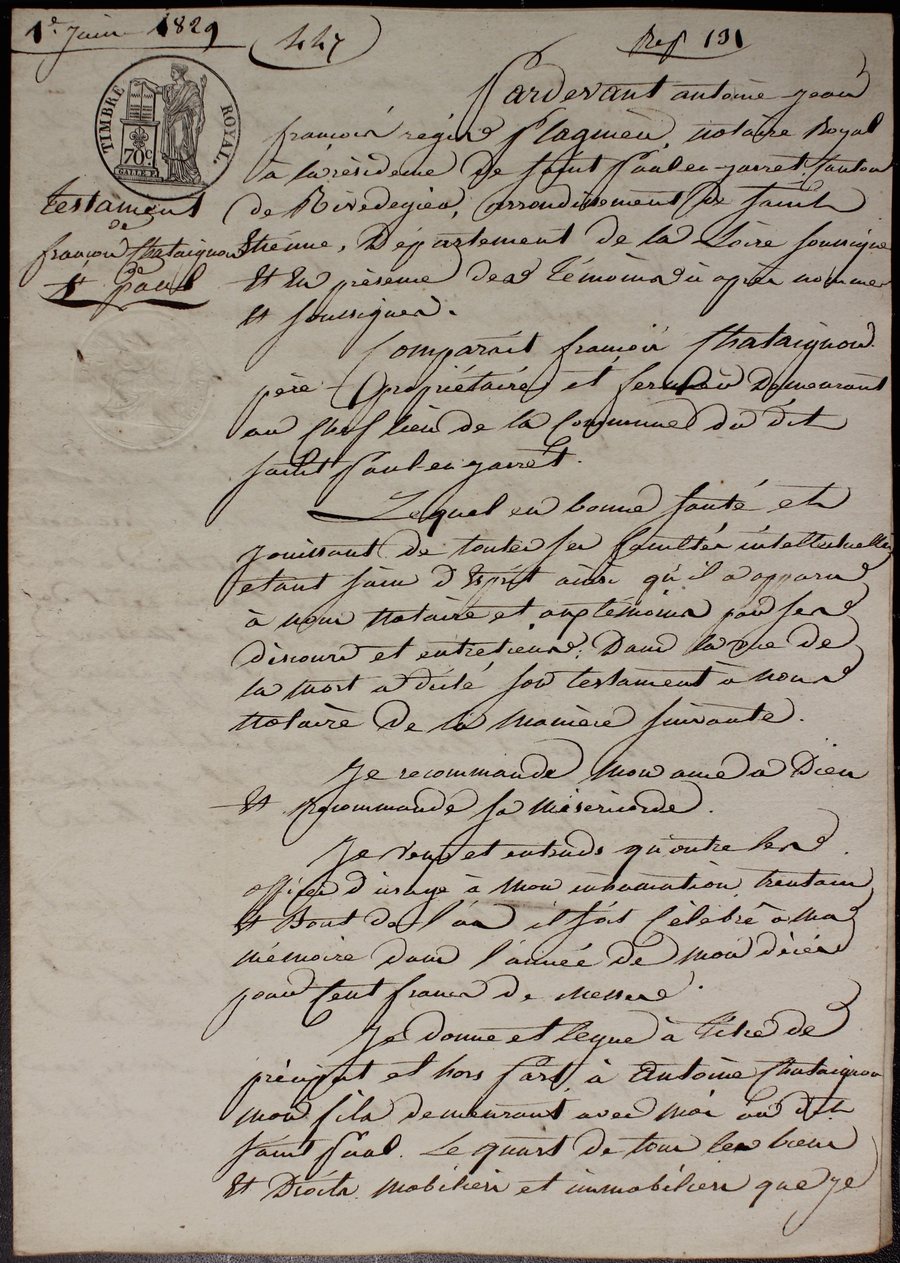 1er Juin 1829
447
Rep 191
TIMBRE ROYAL
70c.
Testament
de
françois Chataignon
de
St paul
Pardevant antoine jean
françois régis Plagnieu, notaire Royal
à la résidence de Saint Paul en jarret, Canton
de Rivedegier, arrondissement de Saint
Etienne, Département de la Loire soussigné
Et En présence des témoins ci après nommés
Et soussignés.
Comparait françois Chataignon
père propriétaire et demeurant
au Chef lieu de la Commune du dit
Saint Paul en jarret.
Lequel en bonne santé et
jouissant de toutes ses facultés intellectuelles
etant sain d'Esprit ainsi qu'il a apparu
à nous Notaire et aux témoins par ses
discours et entretiens; Dans la vue de
la mort a dicté son testament à nous
Notaire de la manière suivante.
Je recommande mon ame a Dieu
Et recommande sa miséricorde.
Je veux et entends qu'outre les
offices d'usage à mon inhumation, trentain
Et Bout de l'an il soit Célébré à ma
mémoire dans l'année de mon décès
pour Cent francs de messes.
Je donne et legue à titre de
préciput et hors Part, à Antoine Chataignon
mon fils demeurant avec moi au dit
Saint Paul. Le quart de tous les biens
Et Droits mobiliers et immobiliers que je